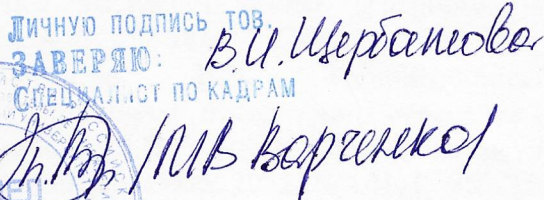 Личную подпись тов.
В.И. Щербатова
ЗАВЕРЯЮ:
Специалист по кадрам
/ М В Варченко /